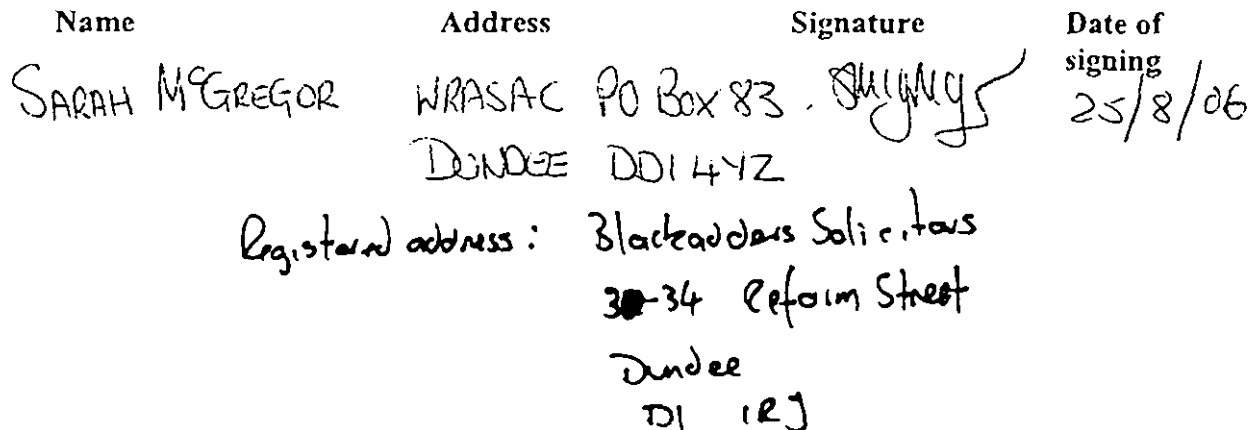 Name Address Signature Date of signing
SARAH McGREGOR WRASAC PO BOX 83. 25/8/06
DUNDEE DD1 4YZ
Registered address: Blackadders Solicitors
34 Reform Street
Dundee
D1 1RJ